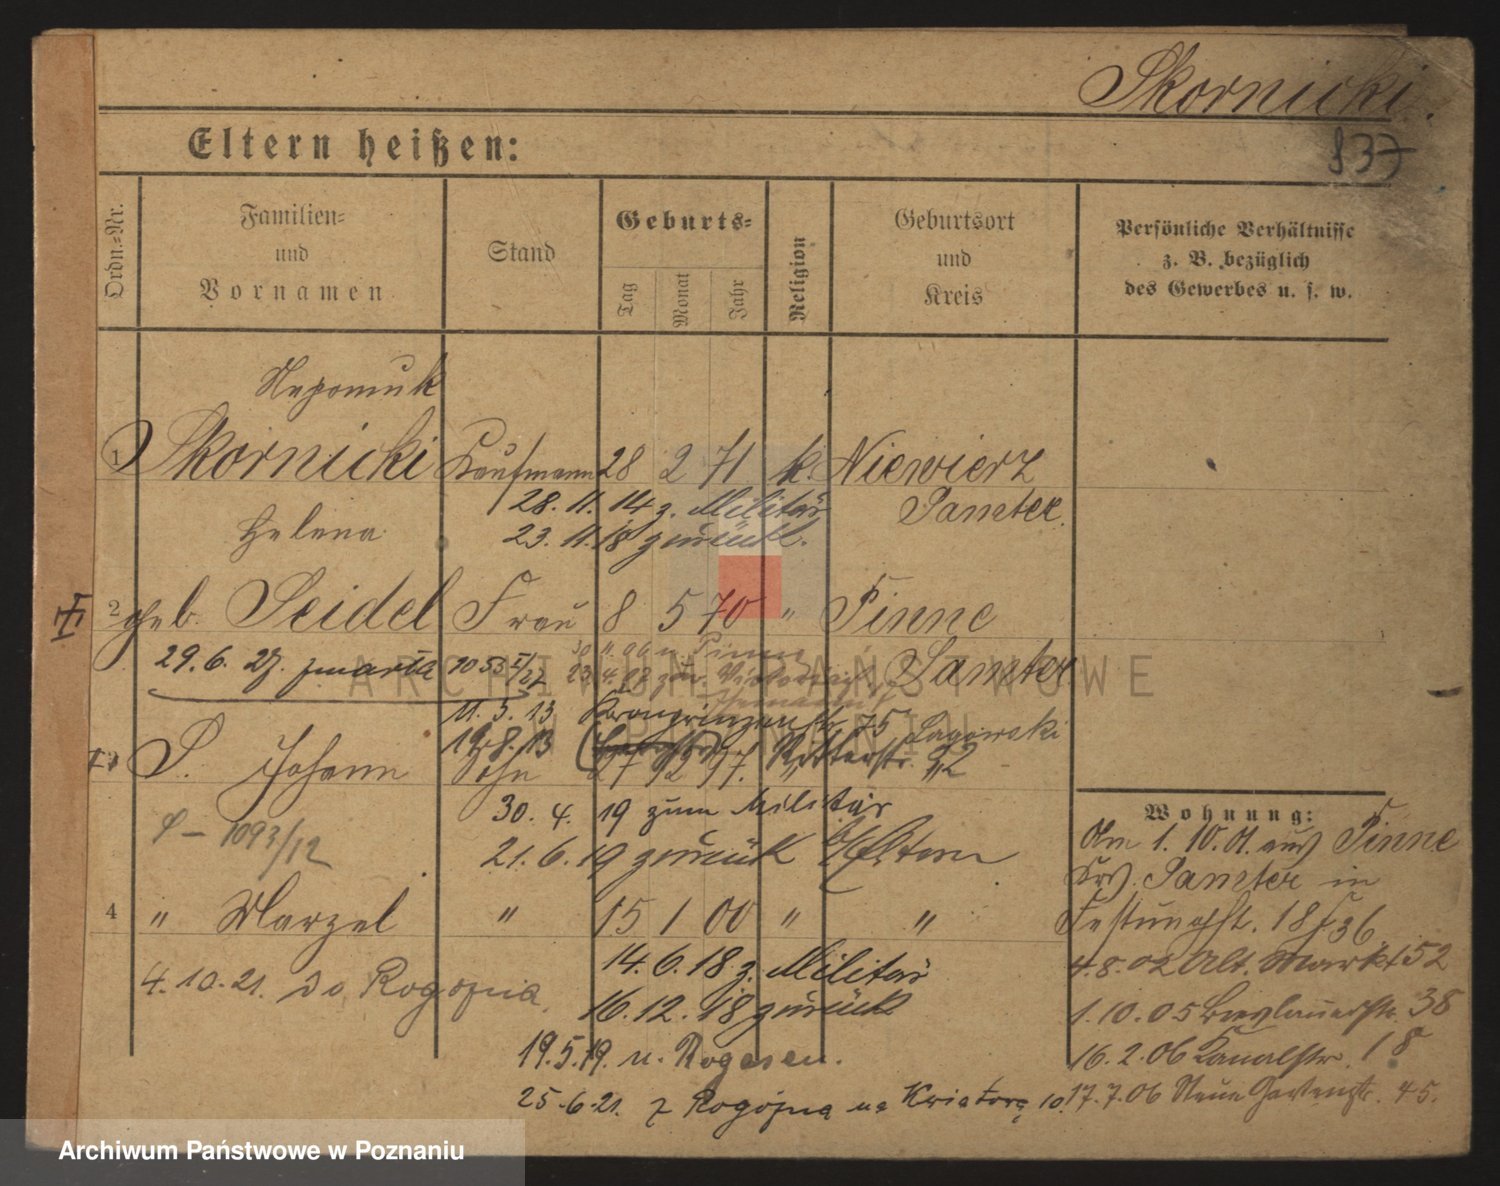 Skornicki.
837
Eltern heißen:
Ordn.=Nr.
Familien=
und
Vornamen
Stand
Geburts=
Tag
Monat
Jahr
Religion
Geburtsort
und
Kreis
Persönliche Verhältnisse
z. B. bezüglich
des Gewerbes u. s. w.
Nepomuk
1 Skornicki Kaufmann 28 2 71 k. Niewierz
28. 11. 14 z. Militär Samter.
Helena 23. 11. 18 zurück.
2 geb. Seidel Frau 8 5 70 " Pinne
29. 6. 27. zmarła 1053 Samter
11. 5. 13 Kronprinzenstr. 75 Lagowski
19. 8. 13 Ritterstr.
S. Johann Sohn 27 12 97. " "
30. 4. 19 zum Militär
1093/12
21. 6. 19 zurück b/Eltern
4 " Marzel " 15 1 00 " "
14. 6. 18 z. Militär
4. 10. 21. do Rogoźna
16. 12. 18 zurück
19. 5. 19. n. Rogasen.
25. 6. 21. z Rogoźna na Kwiatową 10.
Wohnung:
Am 1. 10. 01. aus Pinne
Krs. Samter in
4. 8. 02 Alt. Markt 52
1. 10. 05 Breslauerstr. 38
16. 2. 06 Kanalstr. 18
17. 7. 06 Neue Gartenstr. 45.
ARCHIWUM PAŃSTWOWE
W POZNANIU
Archiwum Państwowe w Poznaniu